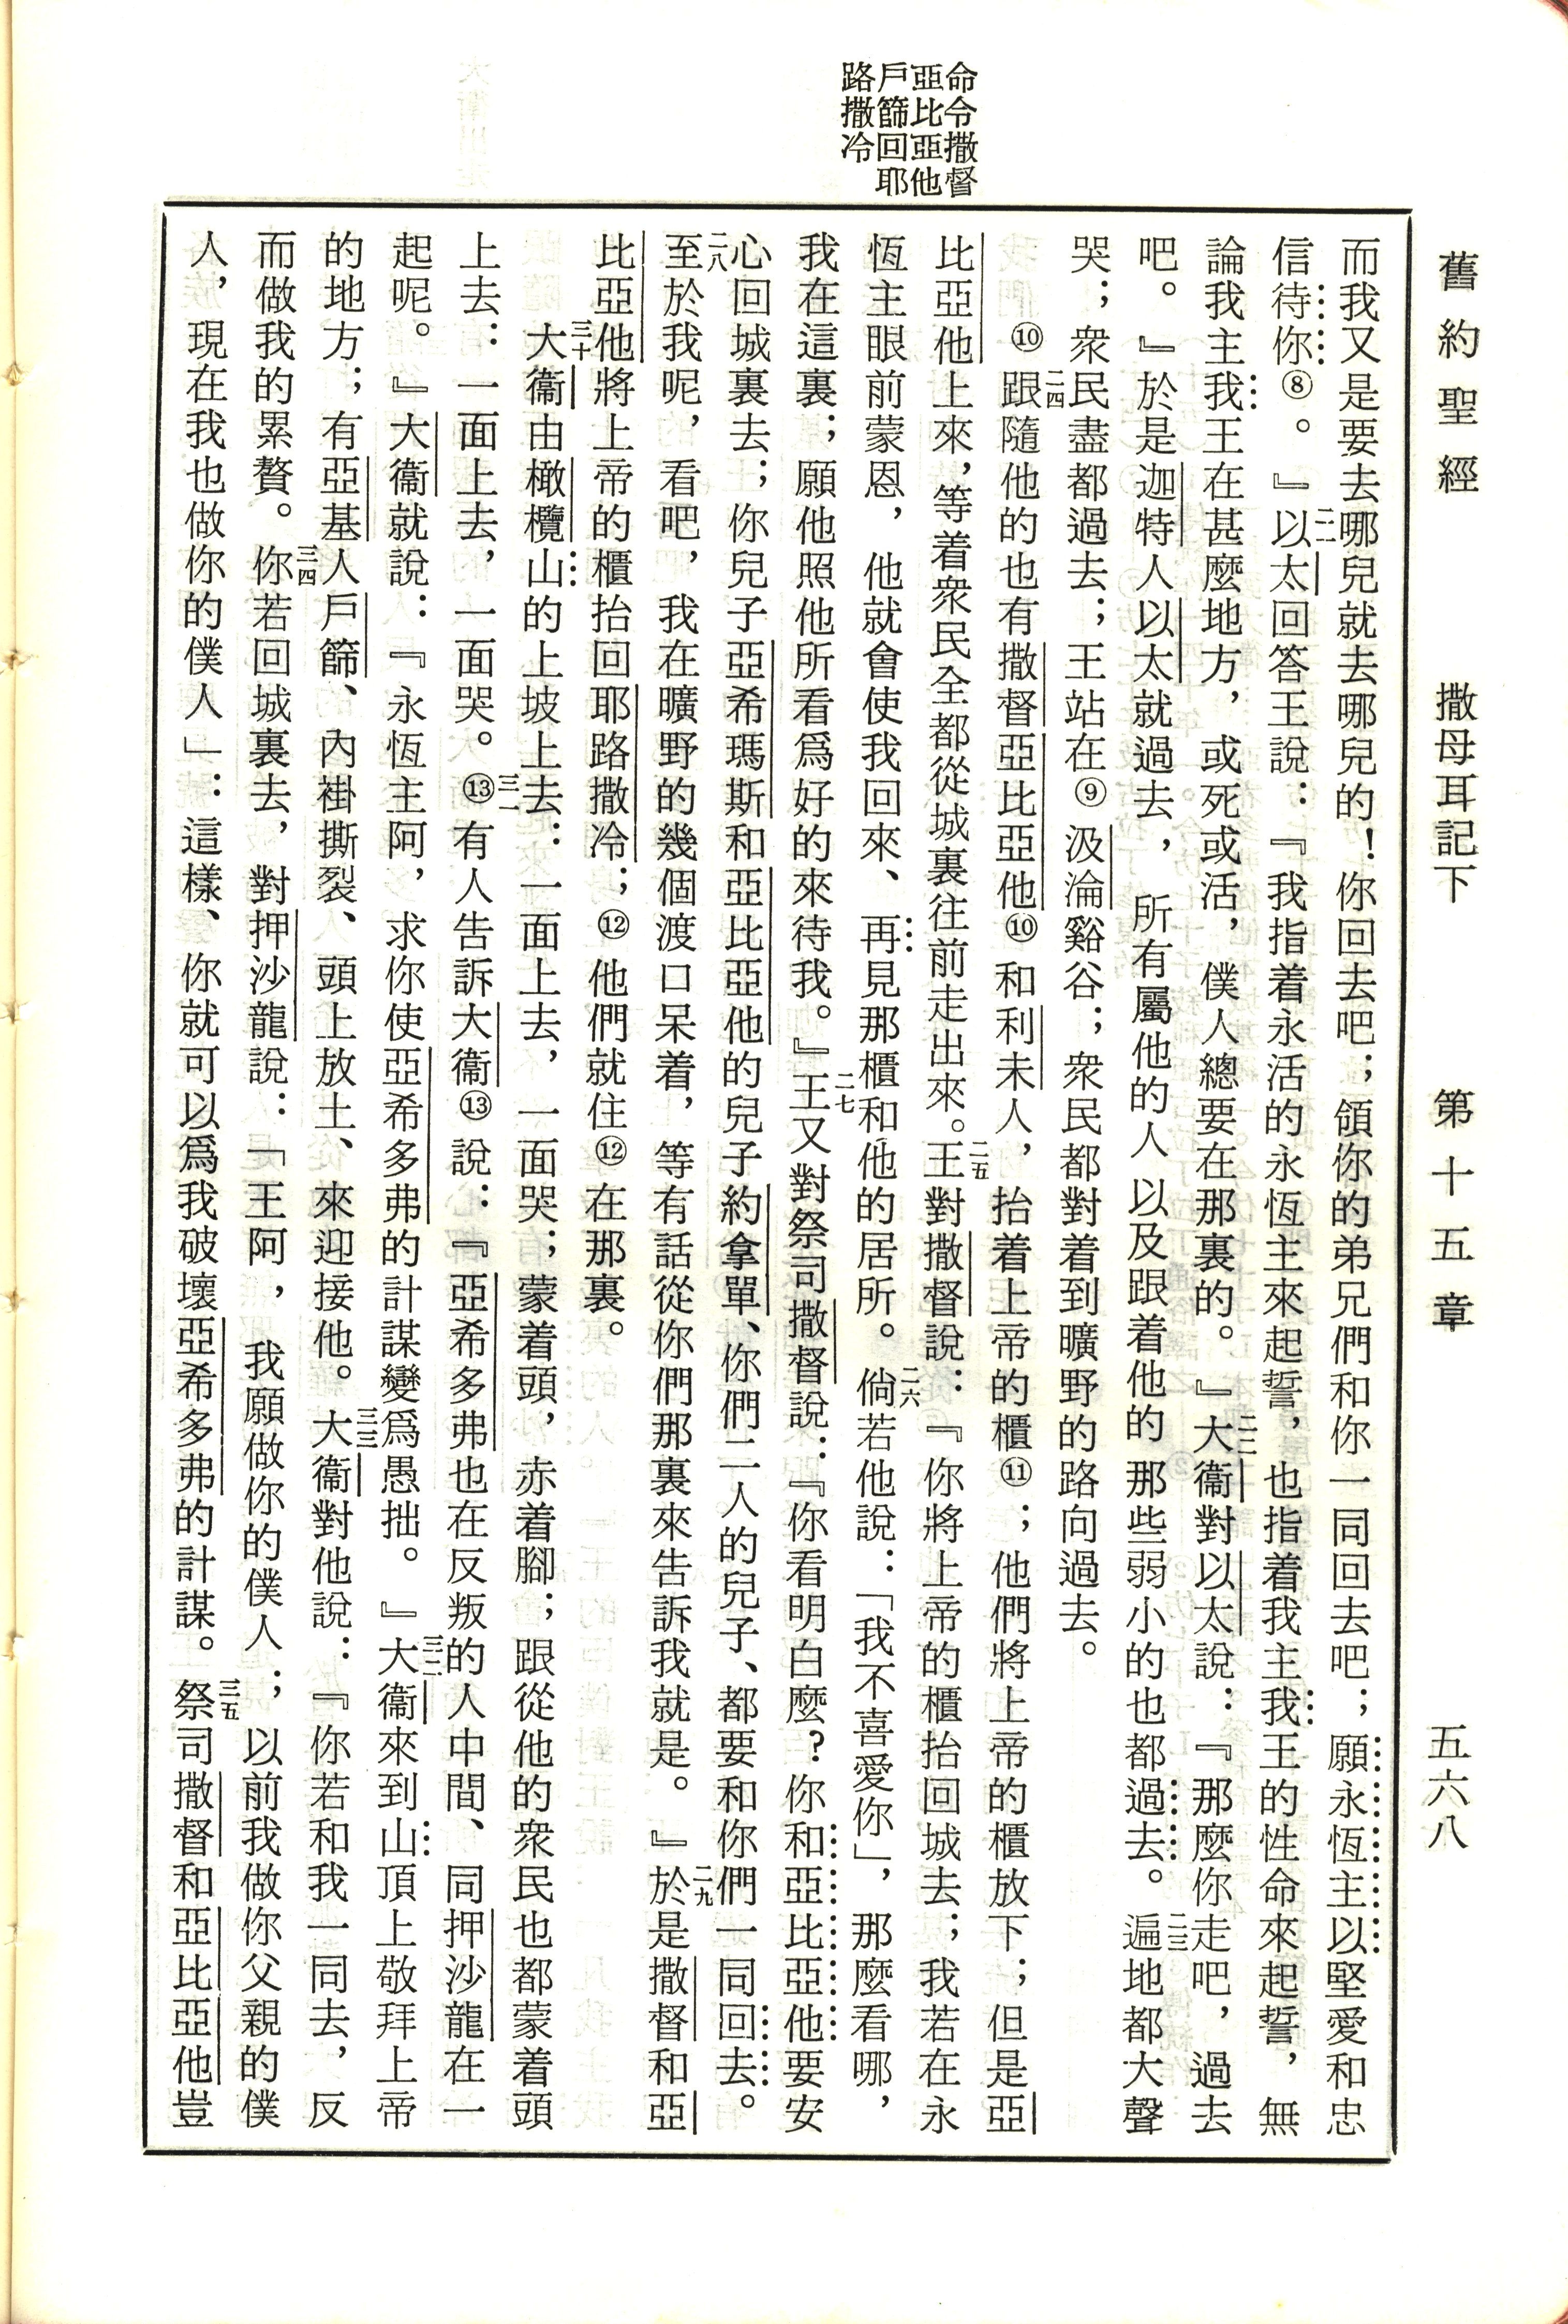 舊約聖經　撒母耳記下　第十五章　五六八
命令撒督
亞比亞他
戶篩回耶
路撒冷
而我又是要去哪兒就去哪兒的！你回去吧；領你的弟兄們和你一同回去吧；願永恆主以堅愛和忠
信待你⑧。』二一以太回答王說：『我指着永活的永恆主來起誓，也指着我主我王的性命來起誓，無
論我主我王在甚麼地方，或死或活，僕人總要在那裏的。』二二大衞對以太說：『那麼你走吧，過去
吧。』於是迦特人以太就過去，所有屬他的人以及跟着他的那些弱小的也都過去。二三遍地都大聲
哭；衆民盡都過去；王站在⑨汲淪谿谷；衆民都對着到曠野的路向過去。
⑩二四跟隨他的也有撒督亞比亞他⑩和利未人，抬着上帝的櫃⑪；他們將上帝的櫃放下；但是亞
比亞他上來，等着衆民全都從城裏往前走出來。二五王對撒督說：『你將上帝的櫃抬回城去；我若在永
恆主眼前蒙恩，他就會使我回來、再見那櫃和他的居所。二六倘若他說：「我不喜愛你」，那麼看哪，
我在這裏；願他照他所看爲好的來待我。』二七王又對祭司撒督說：『你看明白麼？你和亞比亞他要安
心回城裏去；你兒子亞希瑪斯和亞比亞他的兒子約拿單、你們二人的兒子、都要和你們一同回去。
二八至於我呢，看吧，我在曠野的幾個渡口呆着，等有話從你們那裏來告訴我就是。』二九於是撒督和亞
比亞他將上帝的櫃抬回耶路撒冷；⑫他們就住⑫在那裏。
三十大衞由橄欖山的上坡上去：一面上去，一面哭；蒙着頭，赤着腳；跟從他的衆民也都蒙着頭
上去：一面上去，一面哭。三一⑬有人告訴大衞⑬說：『亞希多弗也在反叛的人中間、同押沙龍在一
起呢。』大衞就說：『永恆主阿，求你使亞希多弗的計謀變爲愚拙。』三二大衞來到山頂上敬拜上帝
的地方；有亞基人戶篩、內褂撕裂、頭上放土、來迎接他。三三大衞對他說：『你若和我一同去，反
而做我的累贅。三四你若回城裏去，對押沙龍說：「王阿，我願做你的僕人；以前我做你父親的僕
人，現在我也做你的僕人」：這樣、你就可以爲我破壞亞希多弗的計謀。三五祭司撒督和亞比亞他豈